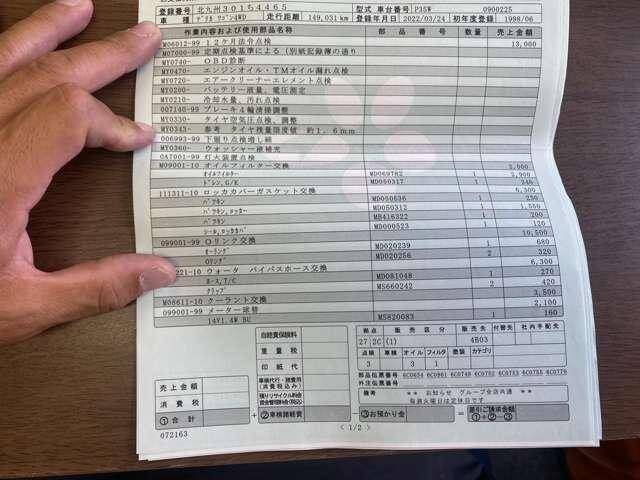 登録番号 北九州301ち4465 型式 車台番号 P35W 0900225
車 種 デリカ ワゴン4WD 走行距離 149,031 km 登録年月日 2022/03/24 初年度登録 1998/06
作業内容および使用部品名称 部 品 番 号 数量 売上金額
M06012-99 12ケ月法令点検 13,000
M07000-99 定期点検基準による(別紙記録簿の通り
MY0740- OBD診断
MY0470- エンジンオイル・TMオイル漏れ点検
MY0720- エアークリーナーエレメント点検
MY0200- バッテリー液量、電圧測定
MY0210- 冷却水量、汚れ点検
007140-99 ブレーキ4輪清掃調整
MY0330- タイヤ空気圧点検、調整
MY0343- 参考 タイヤ残量限度値 約1.6mm
006993-99 下廻り点検増し締
MY0360- ウォッシャー液補充
0AT001-99 灯火装置点検
M09001-10 オイルフィルター交換 2,500
オイルフィルター MD069782 1 2,900
ドレン,G/K MD050317 1 240
111311-10 ロッカカバーガスケット交換 6,300
パツキン MD050536 1 250
パツキン,ロツカー MD050312 1 1,550
パツキン MB416322 1 200
シール,ロツカカバ MD000523 1 120
099001-99 Oリング交換 10,500
オーリング MD020239 1 680
Oリング MD020256 2 320
221-10 ウォータ バイパスホース交換 6,300
ホース,T/C MD081048 1 270
クリツプ MS660242 2 420
M08611-10 クーラント交換 3,500
099001-99 メーター球替 2,100
14V1.4W BU MS820083 1 160
自賠責保険料
重 量 税
印 紙 代
車検代行・諸費用
(消費税込み)
預りリサイクル料金
資金管理料金(税込)
拠点 販 売 区 分 販売先 付替先 社内手配先
27 2C (1) 4B03
点検 車検 オイル フィルタ 塗装 カテゴリ
3 3 1
部品伝票番号 6C0654 6C0861 6C0752 6C0753 6C0755 6C0779
外注伝票番号
備考 ** お知らせ グループ全店共通 **
毎週火曜日は定休日です
売上金額
消 費 税
①合 計 + ②車検諸経費 - ③お預かり金 = 差引ご請求金額
①+②-③
072163
<1/2>